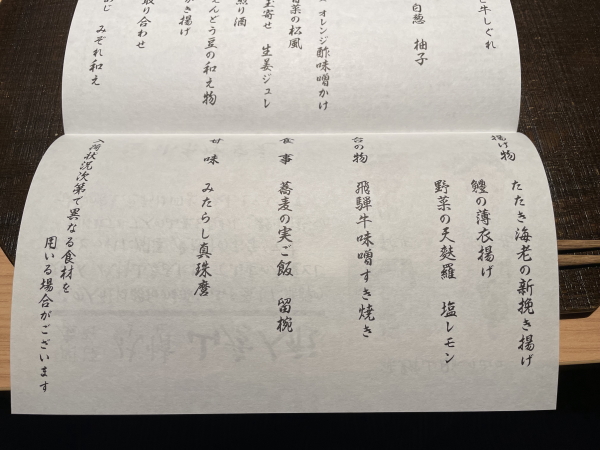 牛しぐれ
白葱 柚子
オレンジ酢味噌かけ
菜の松風
寄せ 生姜ジュレ
煎り酒
えんどう豆の和え物
き揚げ
取り合わせ
みぞれ和え
揚げ物
たたき海老の新挽き揚げ
鱧の薄衣揚げ
野菜の天麩羅 塩レモン
台の物
飛騨牛味噌すき焼き
食事
蕎麦の実ご飯 留椀
甘味
みたらし真珠麿
入荷状況次第で異なる食材を
用いる場合がございます